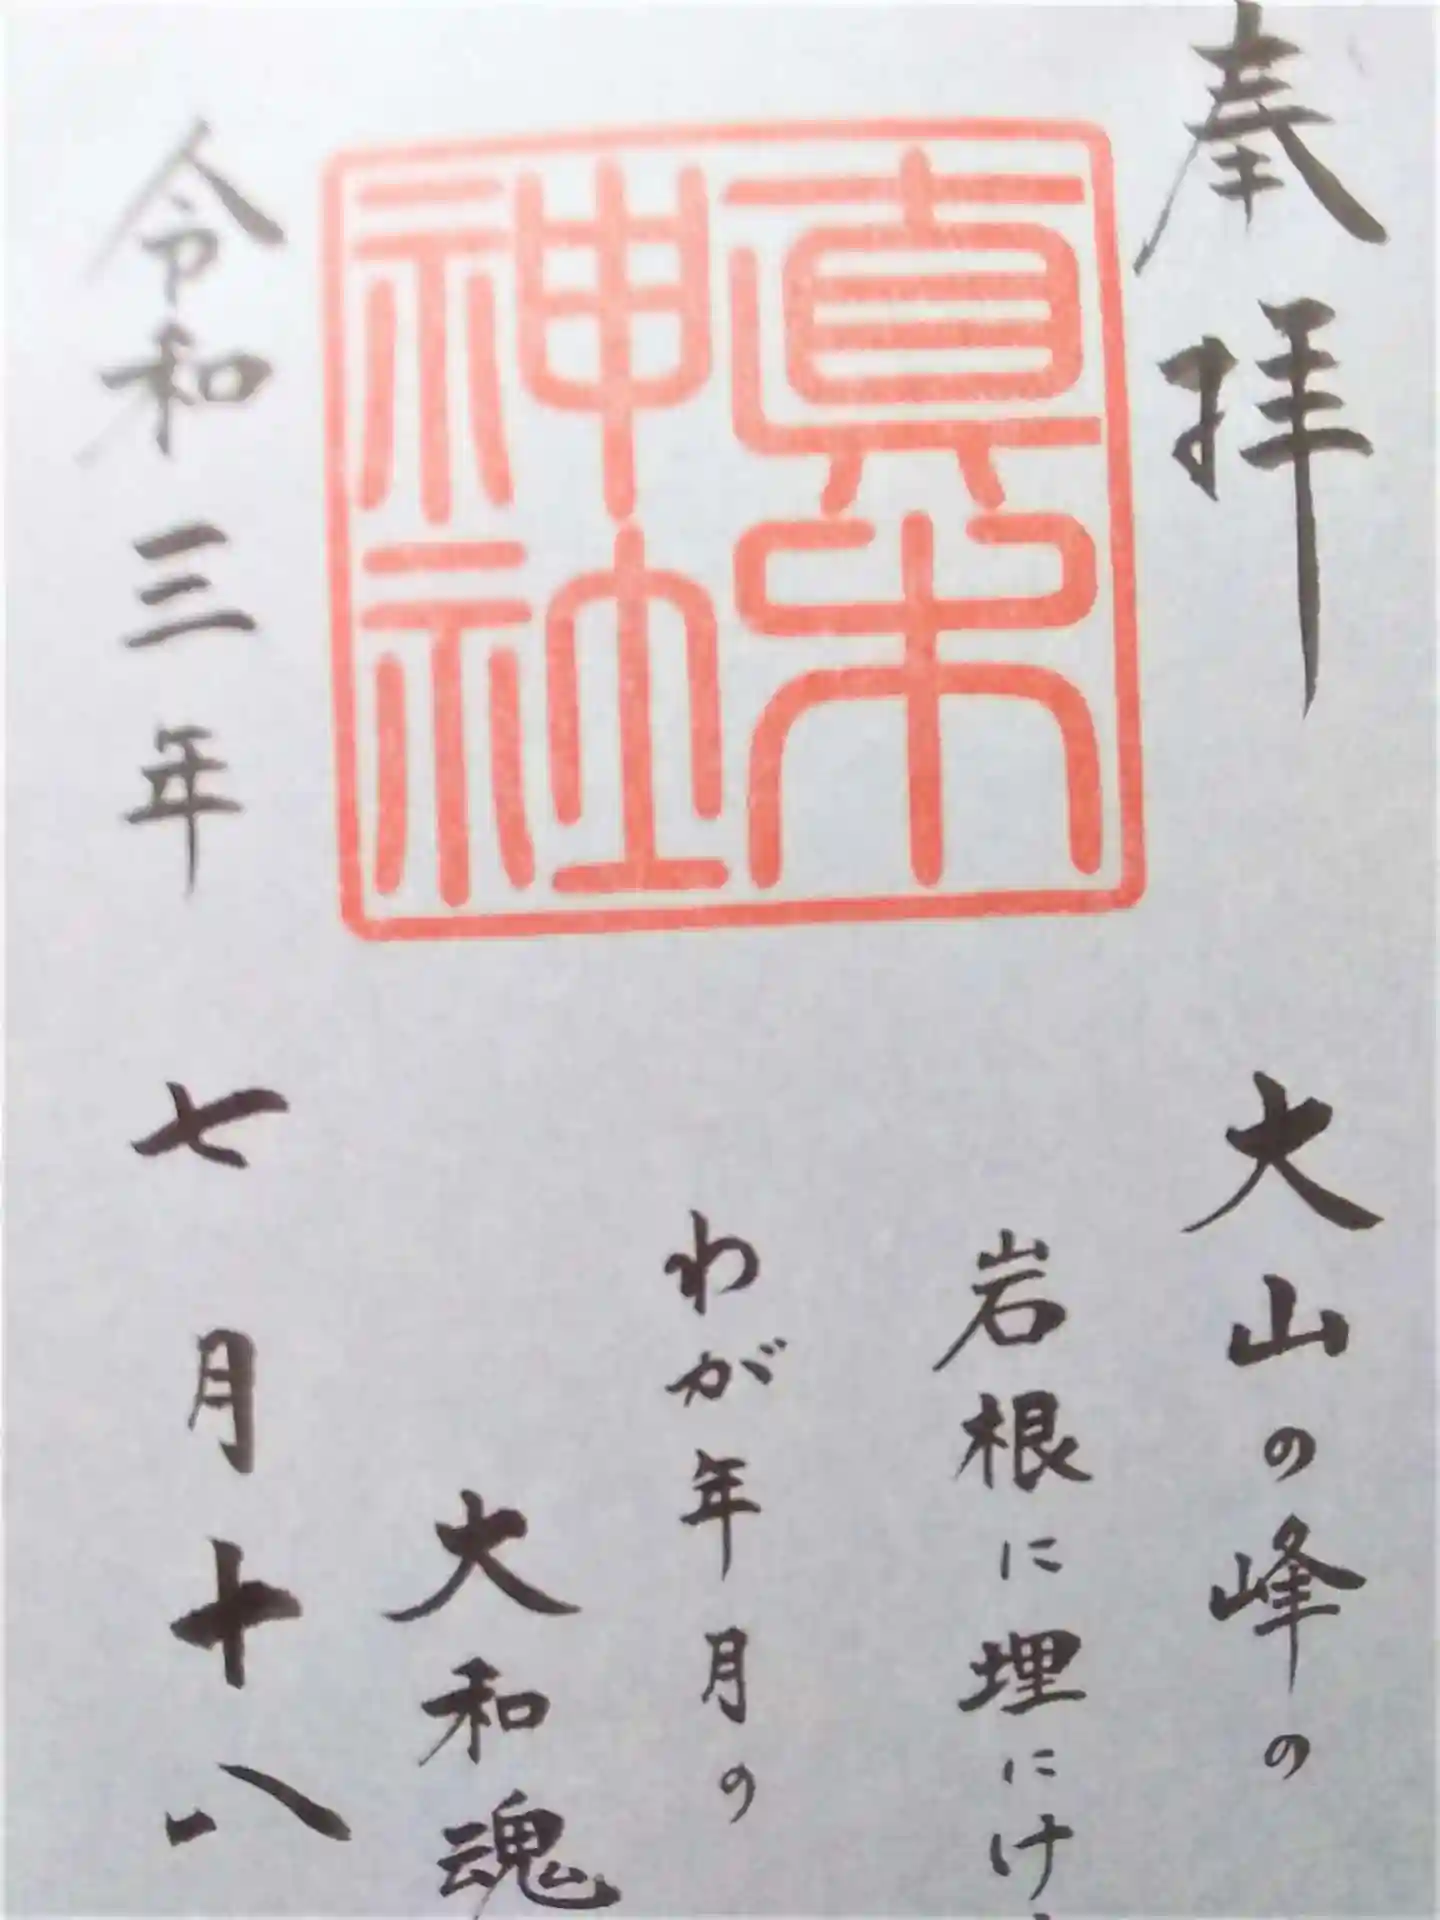 奉拝
大山の峰の
岩根に埋にけ
真木
神社
わが年月の
大和魂
令和三年 七月十八